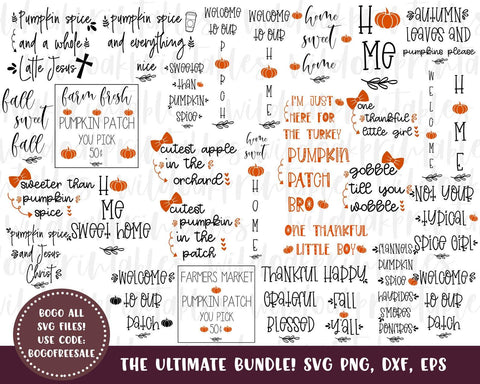 Pumpkin spice
and a whole
Latte Jesus
Pumpkin spice
and everything
nice
WELCOME
TO OUR
PORCH
WELCOME
TO OUR
home
sweet
home
H
ME
AUTUMN
LEAVES AND
pumpkins please
fall
sweet
fall
farm fresh
PUMPKIN PATCH
YOU PICK
50¢
SWEETER
THAN
PUMPKIN
SPICE
I'M JUST
HERE FOR
THE TURKEY
one
thankful
little girl
WELCOME
HOME
cutest apple
in the
orchard
home
sweet
HOME
PUMPKIN
PATCH
BRO
gobble
till you
wobble
sweeter than
pumpkin
spice
H
ME
Sweet home
cutest
pumpkin
in the
patch
ONE THANKFUL
LITTLE BOY
NOT YOUR
TYPICAL
SPICE GIRL
pumpkin spice
and Jesus
Christ
WELCOME
TO OUR
PATCH
FARMERS MARKET
PUMPKIN PATCH
YOU PICK
50¢
THANKFUL
GRATEFUL
BLESSED
HAPPY
FALL
Y'ALL
FLANNELS
PUMPKIN
SPICE
HAYRIDES
SMORES
BONFIRES
WELCOME
TO OUR
PATCH
BOGO ALL
SVG FILES!
USE CODE:
BOGOFREESALE
THE ULTIMATE BUNDLE! SVG PNG, DXF, EPS